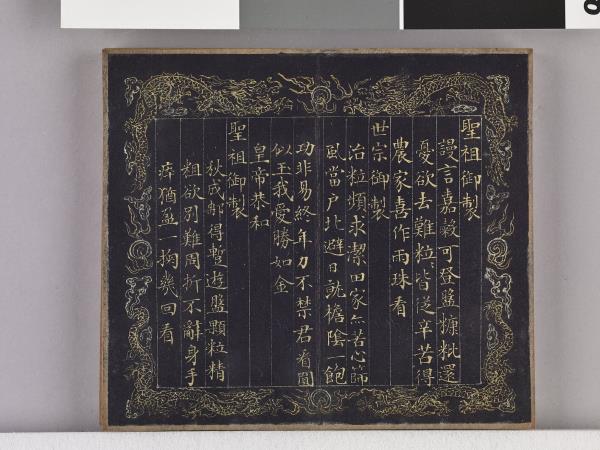 聖祖御製
謾言嘉穀可登盤糠粃還
憂欲去難粒〻皆從辛苦得
農家喜作雨珠看
世宗御製
治粒頻求潔田家亦苦心篩
風當戶北避日就檐陰一飽
功非易終年力不禁君看圓
似玉我愛勝如金
皇帝恭和
聖祖御製
秋成那得暫遊盤顆粒精
粗欲別難周折不辭身手
瘁猶盈一掬幾回看